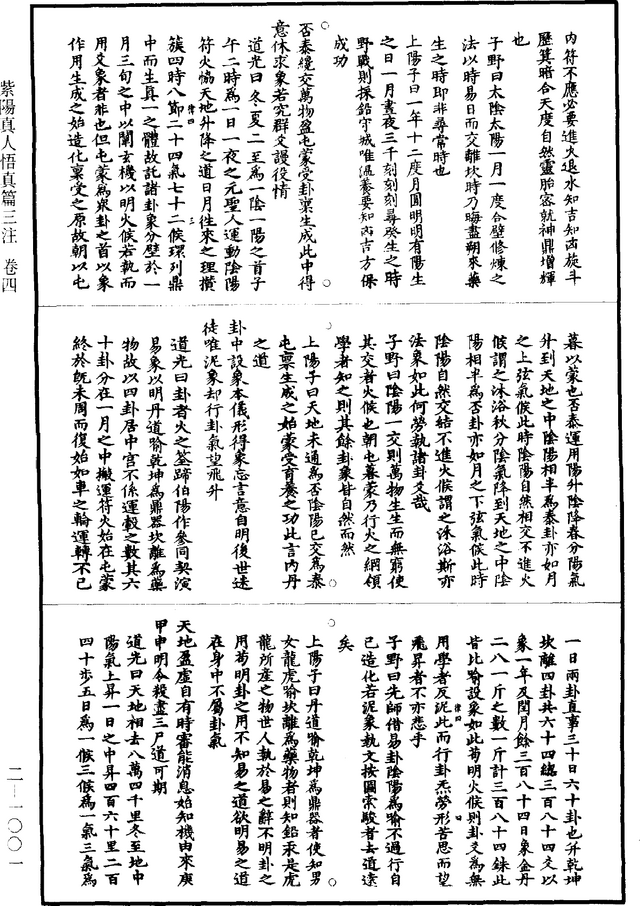 內符不應必要進火退水知吉知凶旋斗
歷箕暗合天度自然靈胎密就神鼎增輝
也
子野曰太陰太陽一月一度合璧修煉之
法以時易日而交離坎時乃晦盡朔來藥
生之時即非尋常時也
上陽子曰一年十二度月圓明明有陽生
之日一月晝夜三千刻刻刻尋癸生之時
野戰則採鉛守城唯溫養要知內吉方保
成功
否泰纔交萬物盈屯蒙受卦稟生成此中得
意休求象若究群爻謾役情
道光曰冬夏二至為一陰一陽之首子
午二時為一日一夜之元聖人運動陰陽
符火協天地升降之道日月往來之理攢
簇四時八節二十四氣七十二候環列鼎
中而生真一之體故託諸卦象分擘於一
月三旬之中以闡玄機以明火候若執而
用爻象者非也但屯蒙為眾卦之首以象
作用生成之始造化稟受之原故朝以屯
暮以蒙也否泰運用陽升陰降春分陽氣
升到天地之中陰陽相半為泰卦亦如月
之上弦氣候此時陰陽自然相交不進火
候謂之沐浴秋分陰氣降到天地之中陰
陽相半為否卦亦如月之下弦氣候此時
陰陽自然交結不進火候謂之沐浴斯亦
法象如此何勞執諸卦爻哉
子野曰陰陽一交則萬物生生而無窮使
其交者火候也朝屯暮蒙乃行火之綱領
學者知之則其餘卦象皆自然而然
上陽子曰天地未通為否陰陽已交為泰
屯稟生成之始蒙受育養之功此言內丹
之道
卦中設象本儀形得象忘言意自明後世迷
徒唯泥象却行卦氣望飛升
道光曰卦者火之筌蹄伯陽作參同契演
易象以明丹道喻乾坤為鼎器坎離為藥
物故以四卦居中宮不係運轂之數其六
十卦分在一月之中搬運符火始在屯蒙
終於既未周而復始如車之輪運轉不已
一日兩卦直事三十日六十卦也升乾坤
坎離四卦共六十四總三百八十四爻以
象一年及閏月餘三百八十四日象金丹
二八一斤之數一斤計三百八十四銖此
皆比喻設象如此苟明火候則卦爻為無
用學者反泥此而行卦炁勞形苦思而望
飛昇者不亦悲乎
子野曰先師借易卦陰陽為喻不過行自
己造化若泥象執文按圖索駿者去道遠
矣
上陽子曰丹道喻乾坤為鼎器者使知男
女龍虎喻坎離為藥物者則知鉛汞是虎
龍所產之物世人執於易之辭不明卦之
用苟明卦之用不知易之道欲明易之道
在身中不屬卦氣
天地盈虛自有時審能消息始知機由來庚
甲申明令殺盡三尸道可期
道光曰天地相去八萬四千里冬至地中
陽氣上昇一日之中昇四百六十里二百
四十步五日為一候三候為一氣三氣為
紫陽真人悟真篇三注 卷四
二—一〇〇一